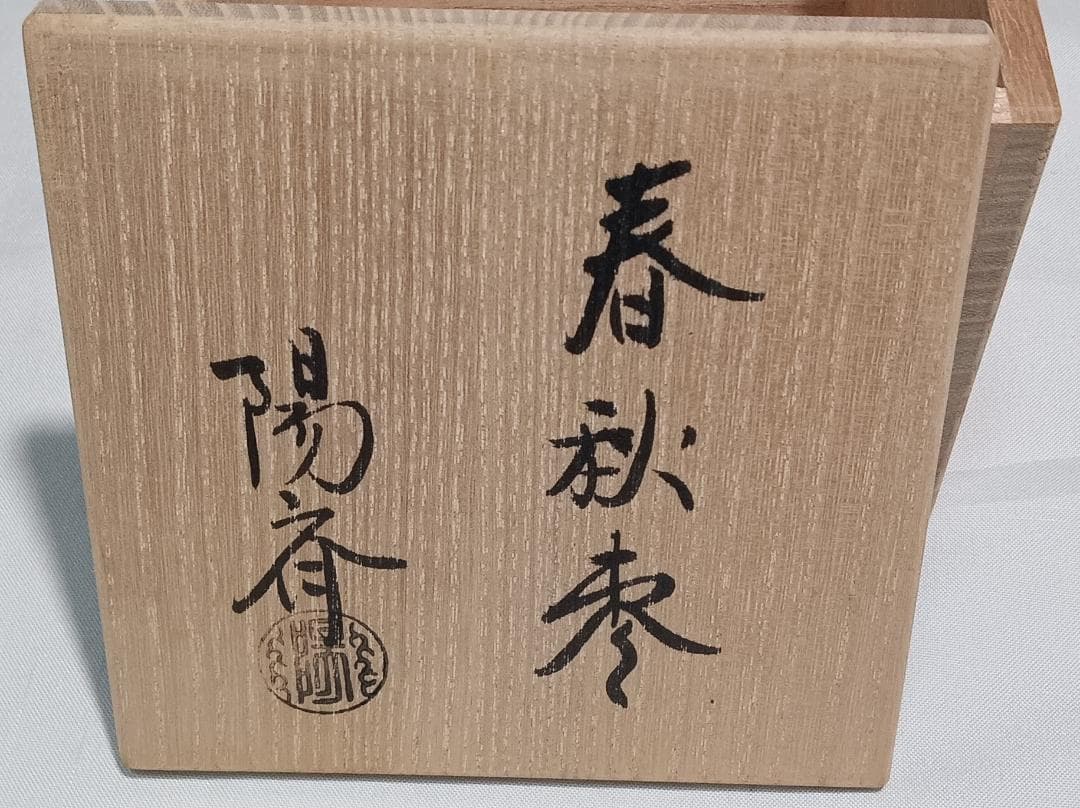 春秋棗
陽斎